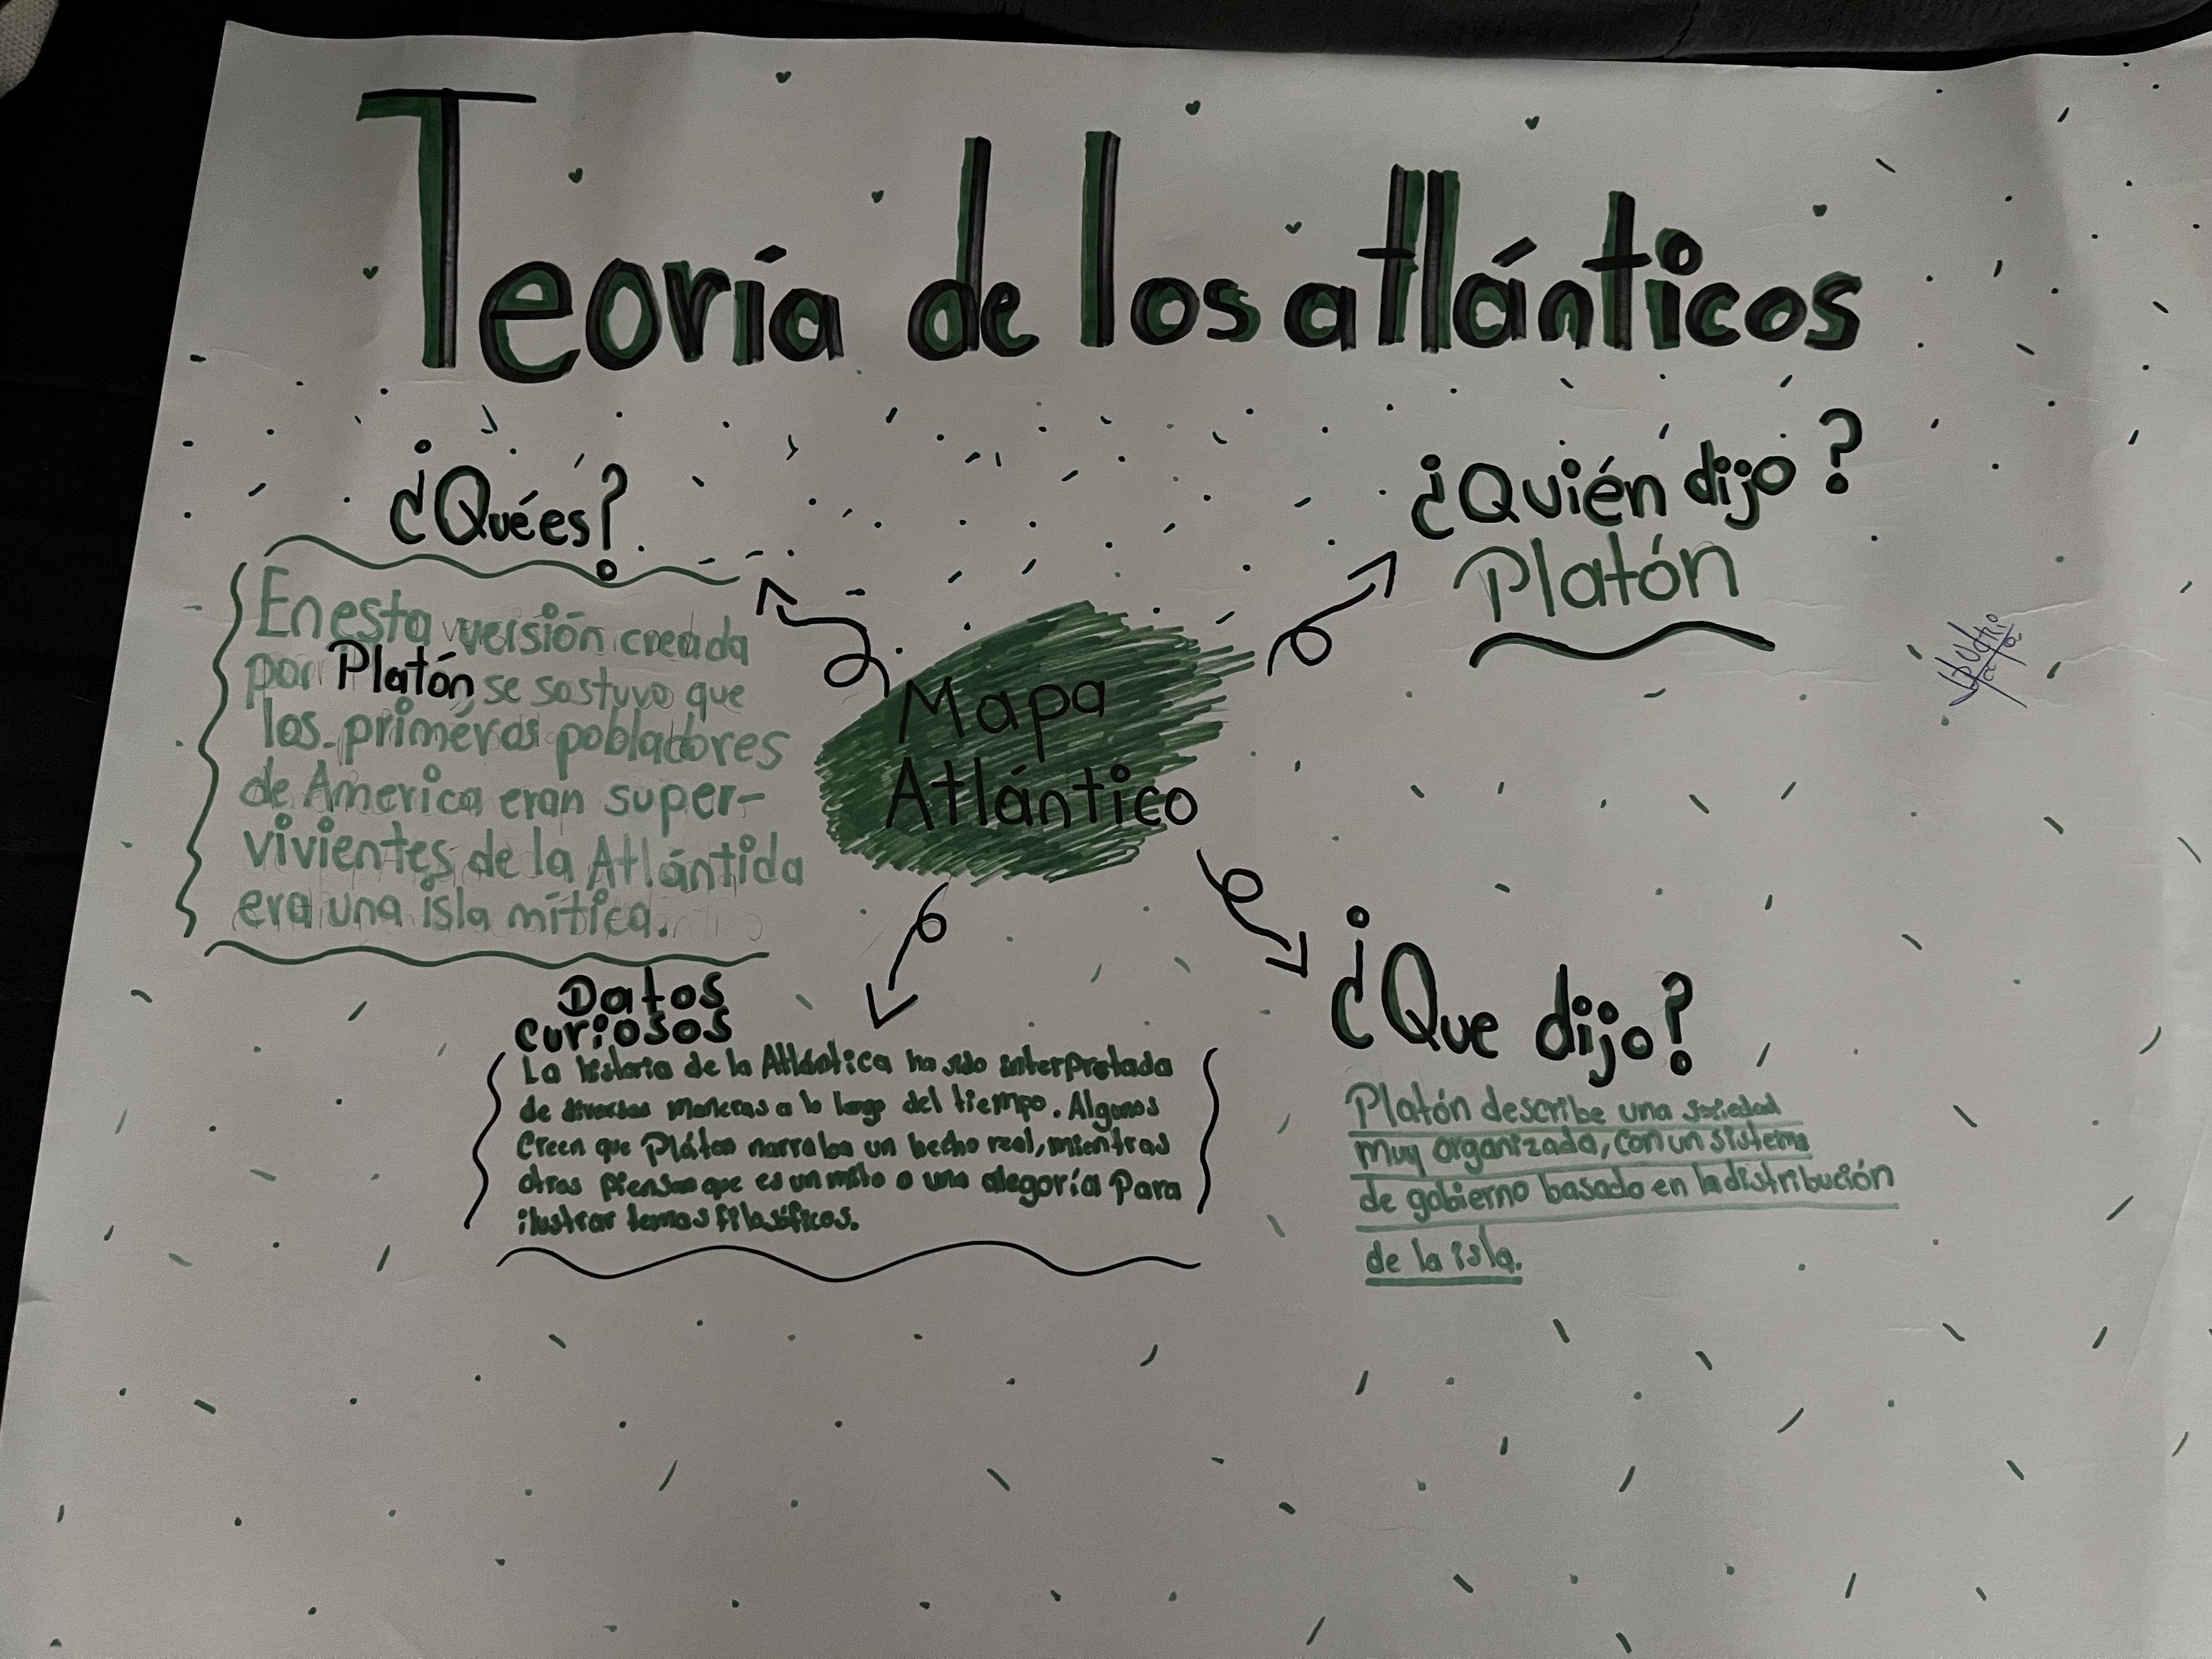 Teoría de los atlánticos
¿Qué es?
En esta versión creada
por Platón, se sostuvo que
los primeros pobladores
de America eran super-
vivientes de la Atlántida
era una isla mítica.
¿Quién dijo?
Platón
Mapa
Atlántico
Datos
curiosos
La historia de la Atlántica ha sido interpretada
de diversas maneras a lo largo del tiempo. Algunos
Creen que Pláton narraba un hecho real, mientras
otros piensan que es un mito o una alegoría Para
ilustrar temas filosóficos.
¿Que dijo?
Platón describe una sociedad
muy organizada, con un sistema
de gobierno basado en la distribución
de la isla.